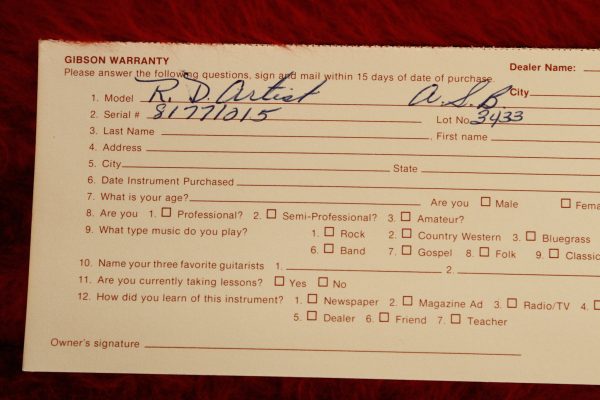 GIBSON WARRANTY
Dealer Name:
Please answer the following questions, sign and mail within 15 days of date of purchase.
City
1. Model R. D. Artist A. S. B.
2. Serial # 81771015 Lot No. 3433
3. Last Name , First name
4. Address
5. City State
6. Date Instrument Purchased
7. What is your age? Are you Male Fema
8. Are you 1. Professional? 2. Semi-Professional? 3. Amateur?
9. What type music do you play? 1. Rock 2. Country Western 3. Bluegrass
6. Band 7. Gospel 8. Folk 9. Classic
10. Name your three favorite guitarists 1. 2.
11. Are you currently taking lessons? Yes No
12. How did you learn of this instrument? 1. Newspaper 2. Magazine Ad 3. Radio/TV 4.
5. Dealer 6. Friend 7. Teacher
Owner's signature